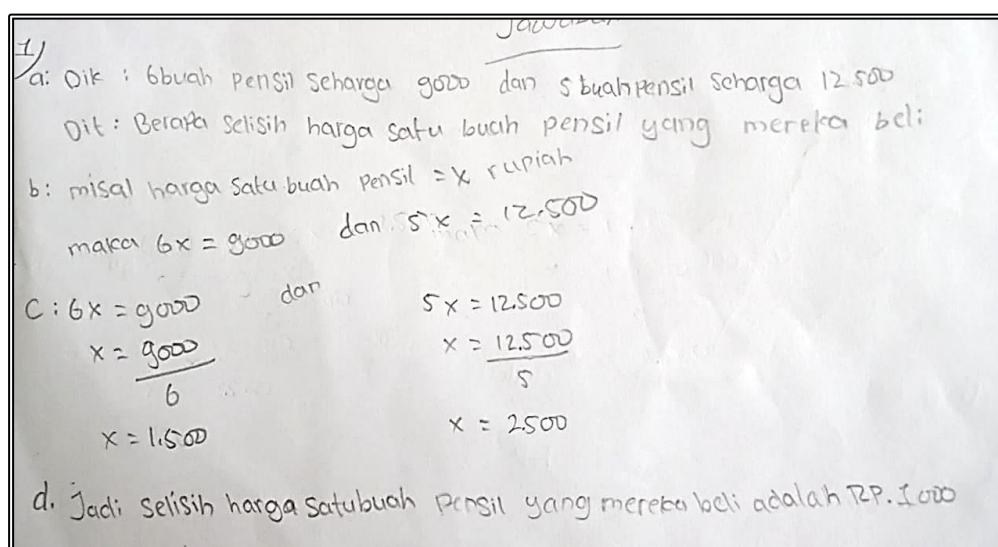 Jawaban
1)
a: Dik : 6buah pensil seharga 9000 dan 5 buah pensil seharga 12.500
Dit : Berapa selisih harga satu buah pensil yang mereka beli
b: misal harga satu buah pensil = x rupiah
maka 6x = 9000 dan 5x = 12.500
C : 6x = 9000 dan 5x = 12.500
x = 9000/6 x = 12.500/5
x = 1.500 x = 2.500
d. Jadi selisih harga satubuah pensil yang mereka beli adalah RP. 1000